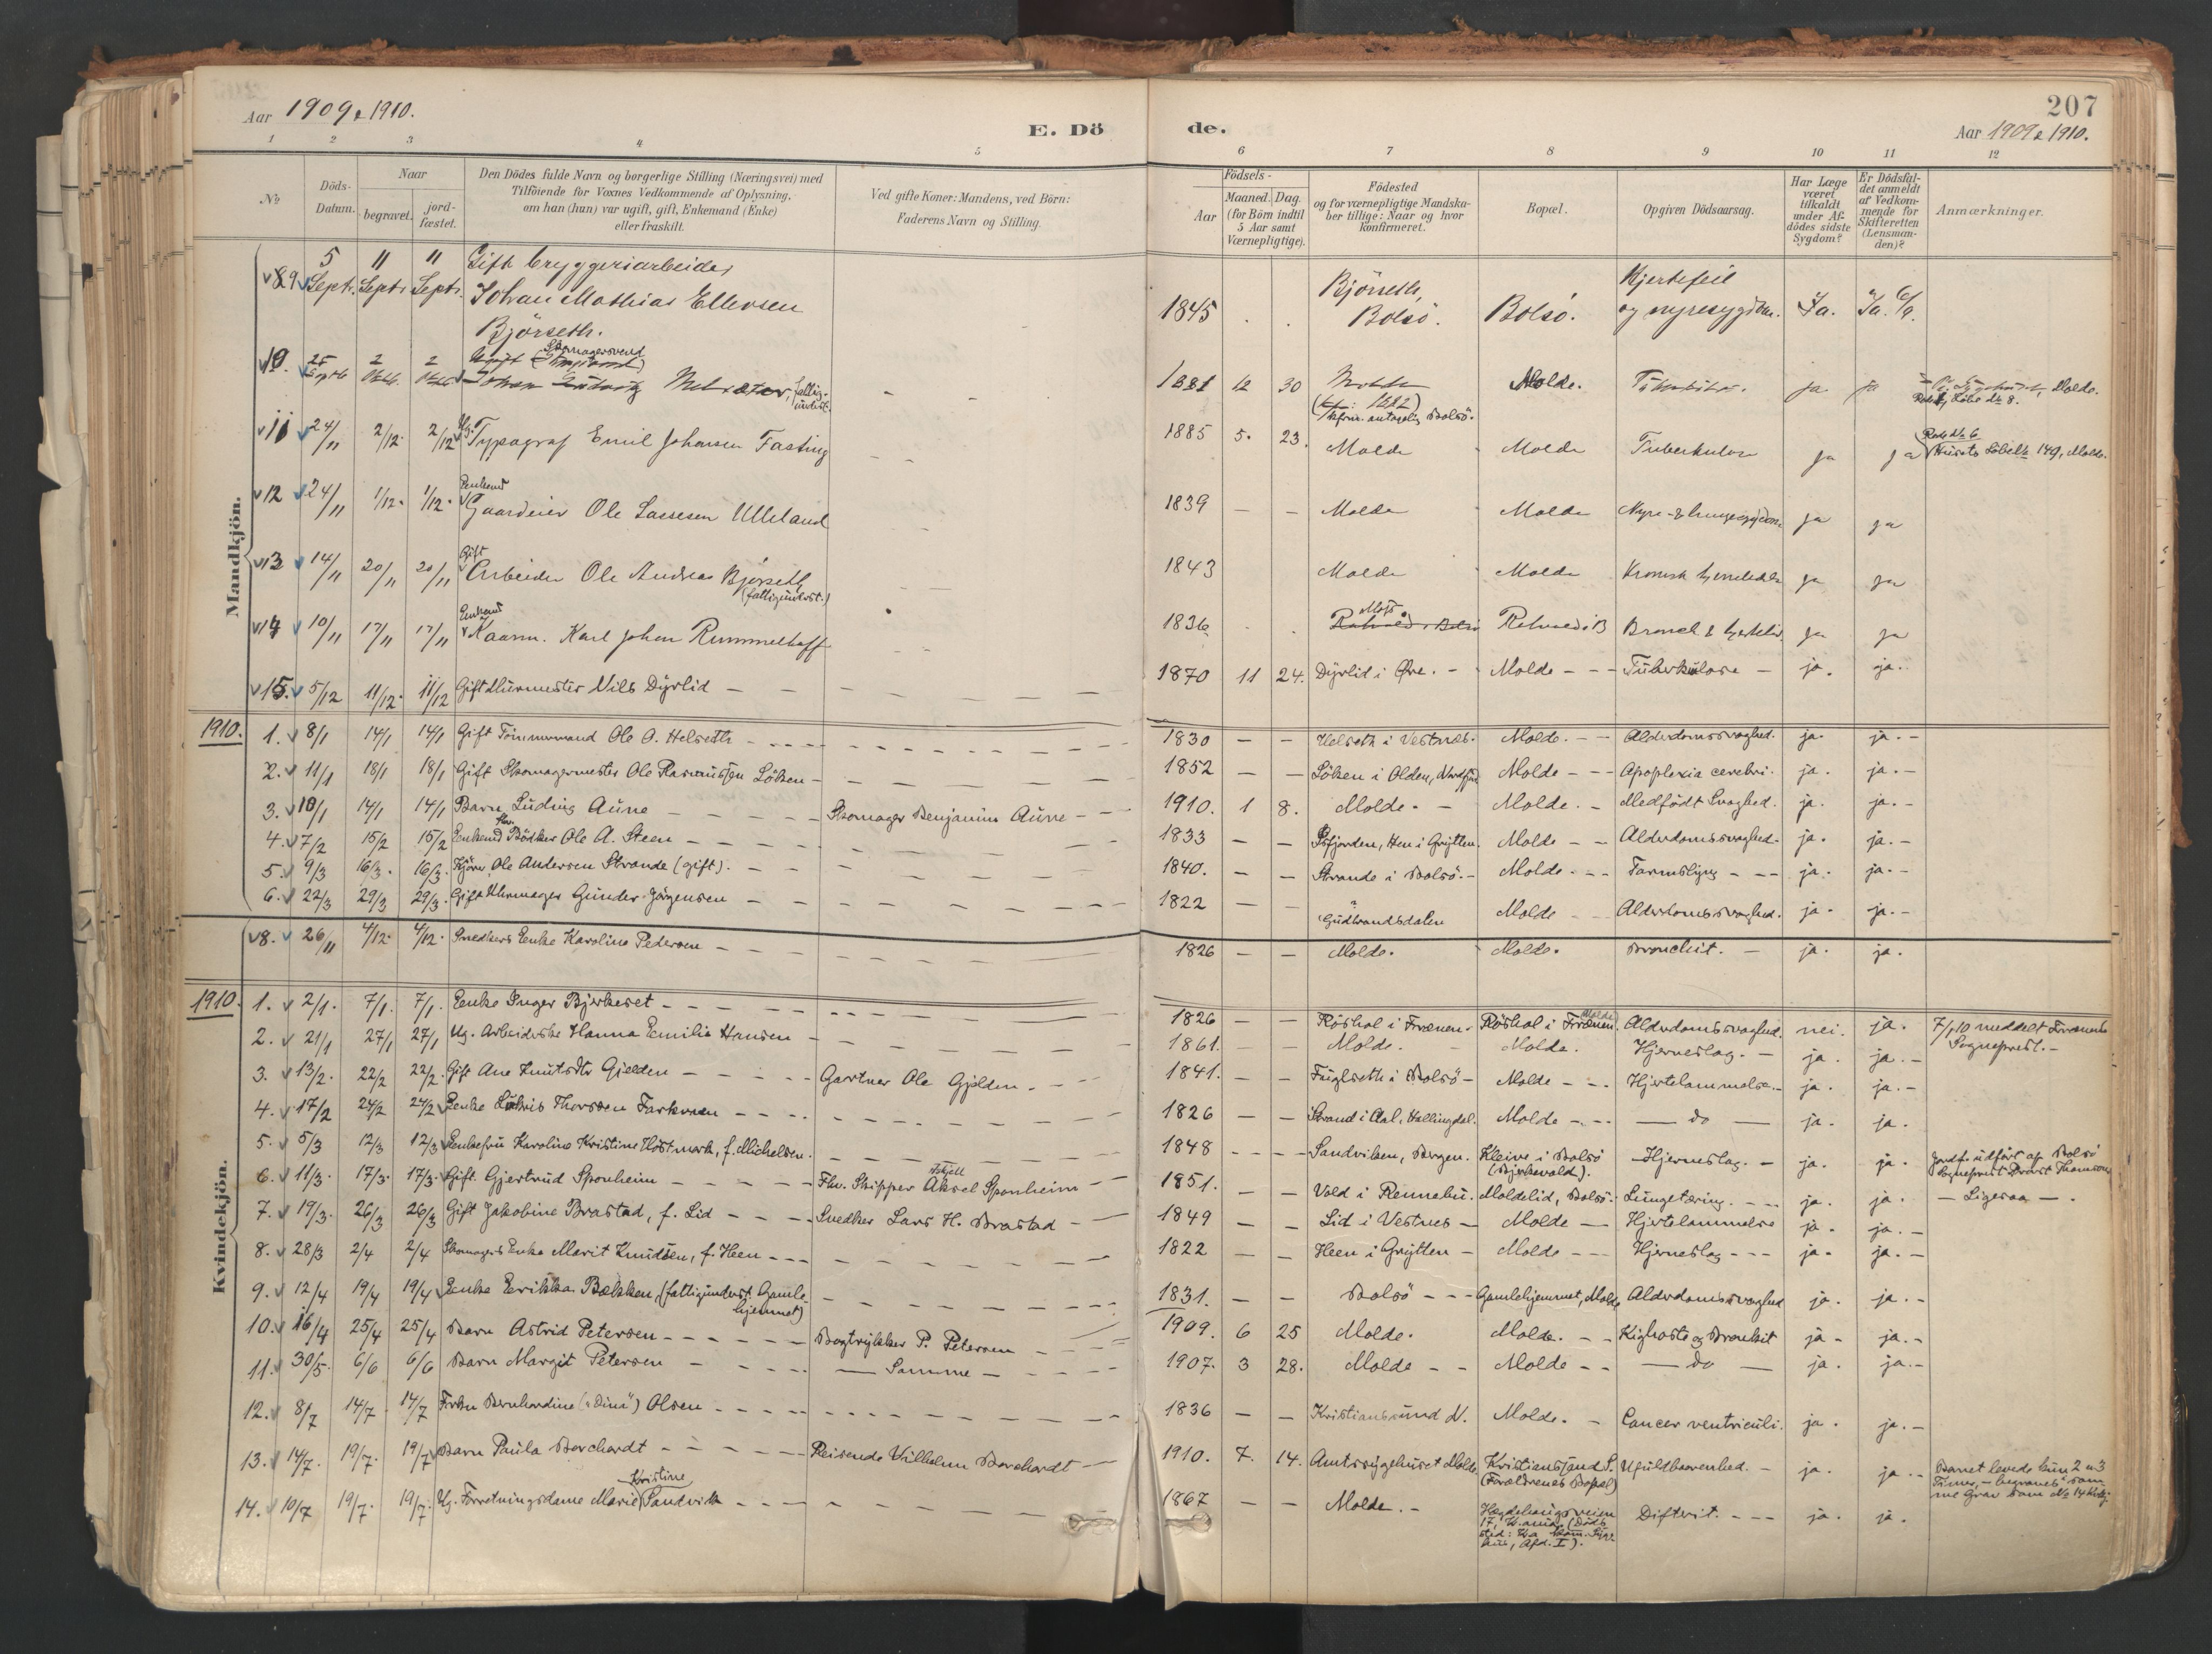 Aar 1909 & 1910.
E. Dö
de.
207
Aar 1909 & 1910.
1 2 3 4 5 6 7 8 9 10 11 12
№
Döds-
Datum.
Naar
begravet.
jord-
fæstet.
Den Dödes fulde Navn og borgerlige Stilling (Næringsvei) med
Tilföiende for Voxnes Vedkommende af Oplysning,
om han (hun) var ugift, gift, Enkemand (Enke)
eller fraskilt.
Ved gifte Koner: Mandens, ved Börn:
Faderens Navn og Stilling.
Födsels-
Aar
Maaned. Dag.
(for Börn indtil
5 Aar samt
Værnepligtige).
Födested
og for værnepligtige Mandska-
ber tillige: Naar og hvor
konfirmeret.
Bopæl.
Opgiven Dödsaarsag.
Har Læge
været
tilkaldt
under Af-
dödes sidste
Sygdom?
Er Dödsfal-
det anmeldt
af Vedkom-
mende for
Skifteretten
(Lensman-
den)?
Anmærkninger.
Mandkjön.
5 11 11 Gift bryggeriarbeider
9 Septr. Septr. Septr. Johan Mathias Ellevsen
Björseth.
1845 Björseth, Bolsö. Bolsö. Hjertefeil og nyresygdom. Ja. Ja.
10. 25 Septb 2 Oktb. 2 Oktb. Ugift Skomagersvend
Johan Ludvig fattig-
underst.
1881 12 30 Molde. ja ja
11 24/11 2/12 2/12 Ug. Typograf Emil Johansen Fasting 1885 5. 23. Molde Molde Tuberkulose ja ja
12 24/11 1/12 1/12 Enkemd Gaardeier Ole Lassesen Ulleland 1839 — — Molde Molde Nyre- & lungesygdom ja ja
13 14/11 20/11 20/11 Gift Arbeider Ole Andreas Bjørseth
(fattigunderst.)
1843 Molde Molde Kronisk ja ja
14 10/11 17/11 17/11 Enkemd Kaarm. Karl Johan Rummelhoff 1836 Moss. Retvoed i B Bronch & ja ja
15. 5/12 11/12 11/12 Gift Murmester Nils Dyrlid 1870 11 24. Dyrlid i Øre. Molde Tuberkulose ja. ja.
1910. 1. 8/1 14/1 14/1 Gift Tömmermand Ole O. Helseth 1830 — — Helseth i Vestnæs. Molde. Alderdomssvaghed. ja. ja.
2. 11/1 18/1 18/1 Gift Skomagermester Ole Rasmussen Löken 1852 — — Löken i Olden, Nordfjord Molde Apoplexia cerebri. ja. ja.
3. 10/1 14/1 14/1 Barn Ludvig Aune Skomager Benjamin Aune 1910. 1 8. Molde. Molde. Medfödt Svaghed. ja. ja.
4. 7/2 15/2 15/2 Enkemd Fhv. Bödker Ole A. Steen 1833 — — Isfjorden, Hen i Grytten. Molde Alderdomssvaghed. ja. ja.
5. 9/3 16/3. 16/3. Kjörer Ole Andersen Strande (gift). 1840. — — Strande i Bolsö. Molde. Tarmslyng ja. ja.
6. 22/3 29/3 29/3. Gift Uhrmager Gunder Jörgensen 1822 — — Gudbrandsdalen Molde Alderdomssvaghed. ja. ja.
Kvindekjön.
8. 26/11 4/12. 4/12. Snedkers Enke Karoline Pedersen 1826 — — Molde. Molde. Bronchit. ja. ja.
1910. 1. 2/1. 7/1. 7/1. Enke Inger Bjerkeset 1826 — — Röshol i Frænen. Röshol i Frænen. (Molde) Alderdomssvaghed. nei. ja. 7/1 10 meddelt Frænens
Sogneprest.
2. 21/1 27/1 27/1 Ug. Arbeiderske Hanna Emilie Hansen 1861. — — Molde. Molde. Hjerneslag. ja. ja.
3. 13/2. 22/2 22/2. Gift Ane Knutsdtr Gjelden Gartner Ole Gjelden. 1841. — — Fuglseth i Bolsö Molde Hjertelammelse. ja. ja.
4. 17/2 24/2 24/2 Enke Lovis Thorsdtr 1826 — — Strand i Aal, Hallingdal. Molde do ja. ja.
5. 5/3 12/3 12/3 Enkefru Karoline Kristine Höstmark, f. Michelsen. 1848 Sandviken, Bergen. Kleive i Bolsö
(Bjerkevold). Hjerneslag. ja. ja. Jordf. udfört af Bolsö
Sogneprest Provst Thomsen
6. 11/3. 17/3. 17/3. Gift Gjertrud Sponheim Fhv. Skipper Askjell Aksel Sponheim 1851. — — Vold i Rennebu. Moldelid, Bolsö. Lungetæring. ja. ja. — Ligesaa —.
7. 19/3. 26/3 26/3 Gift Jakobine Brastad, f. Lid Snedker Lars H. Brastad 1849 — — Lid i Vestnes Molde Hjertelammelse ja. ja.
8. 28/3 2/4 2/4 Skomagers Enke Marit Knudsen, f. Heen 1822 — — Heen i Grytten Molde Hjerneslag ja. ja.
9. 12/4 19/4 19/4 Enke Erikka Bækken, (fattigunderst. Gamle-
hjemmet)
1831. — — Bolsö Gamlehjemmet, Molde Alderdomssvaghed ja. ja.
10. 16/4 25/4 25/4 Barn Astrid Petersen Bogtrykker P. Petersen 1909. 6 25 Molde. Molde. Kighoste og Bronkit ja ja.
11. 30/5. 6/6 6/6 Barn Margit Petersen — Samme — 1907. 3 28. Molde Molde do ja. ja.
12. 8/7 14/7 14/7 Frkn Bernhardine („Dina") Olsen 1836 — — Kristianssund N. Molde. Cancer ventriculi. ja. ja.
13. 14/7. 19/7. 19/7 Barn Paula Borchardt Reisende Vilhelm Borchardt 1910. 7. 14. Amtssygehuset Molde. Kristianssand S.
(Forældrenes Bopæl) Ufuldbaarenhed. ja. ja. Barnet levede kun 2 a 3
Timer, – begraves i sam-
me Grav som № 14
14. 10/7 19/7. 19/7. Ug. Forretningsdame Marie Kristine Sandvik 1867 — — Molde. Hegdehaugsveien
17, Kr.ania (Döds-
sted: Kr.a Kom. Syge-
hus, Afd. I). Difterit. ja. ja.